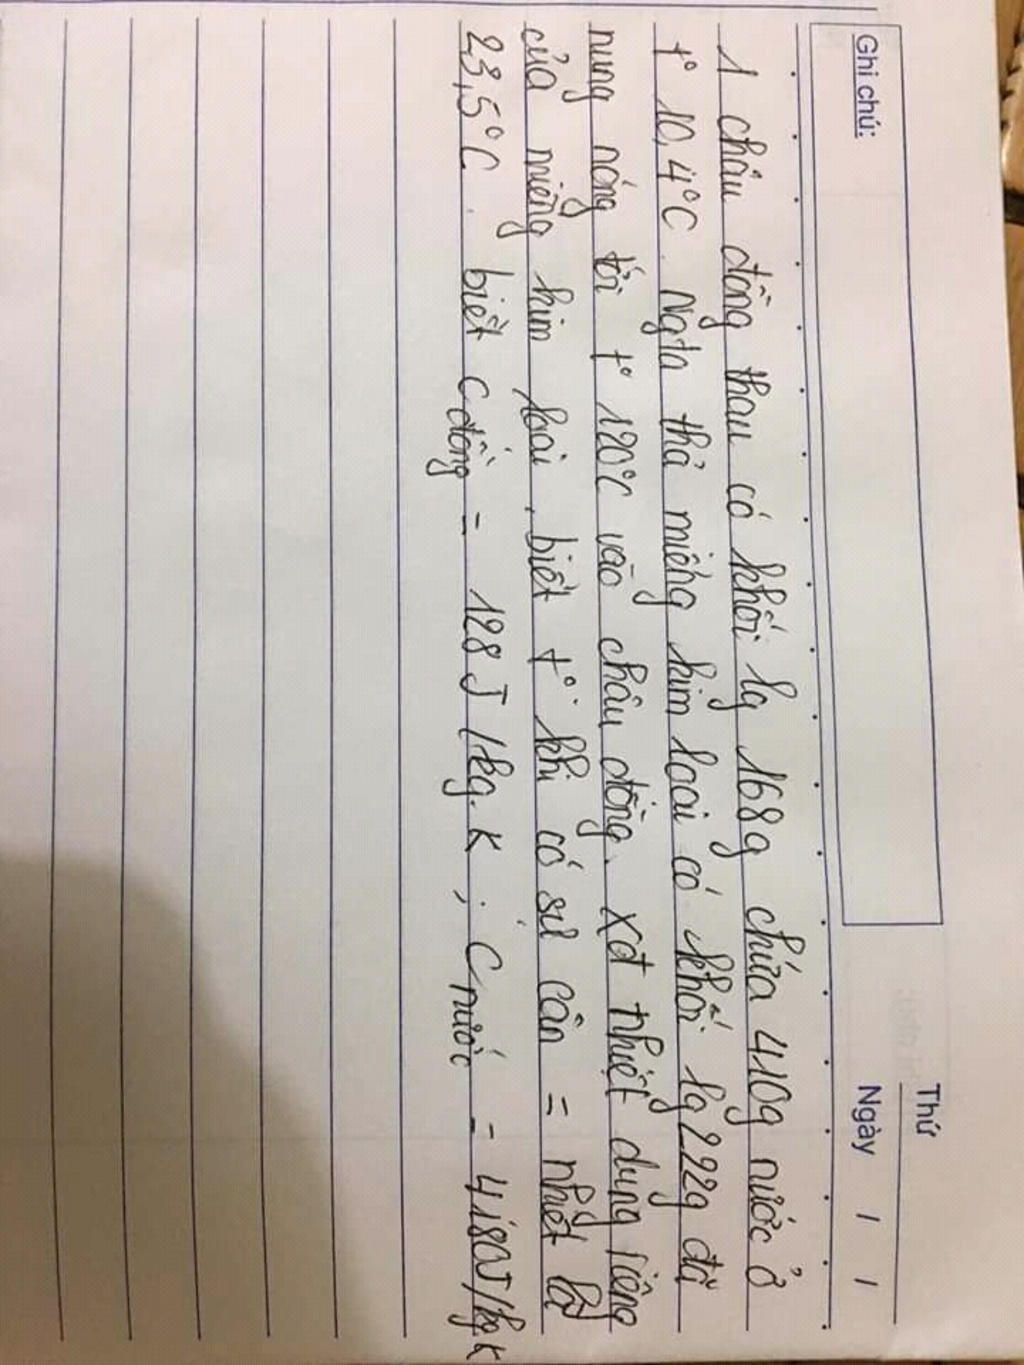 Thứ
Ghi chú:
Ngày / /
1 chậu đồng thau có khối lg 168g chứa 410g nước ở
t° 10,4°C. Ngta thả miếng kim loại có khối lg 222g đã
nung nóng tới t° 120°C vào chậu đồng. xđ nhiệt dung riêng
của miếng kim loại, biết t° khi có sự cân = nhiệt là
23,5°C. biết C đồng = 128J/kg.K; C nước = 4180J/kg.K